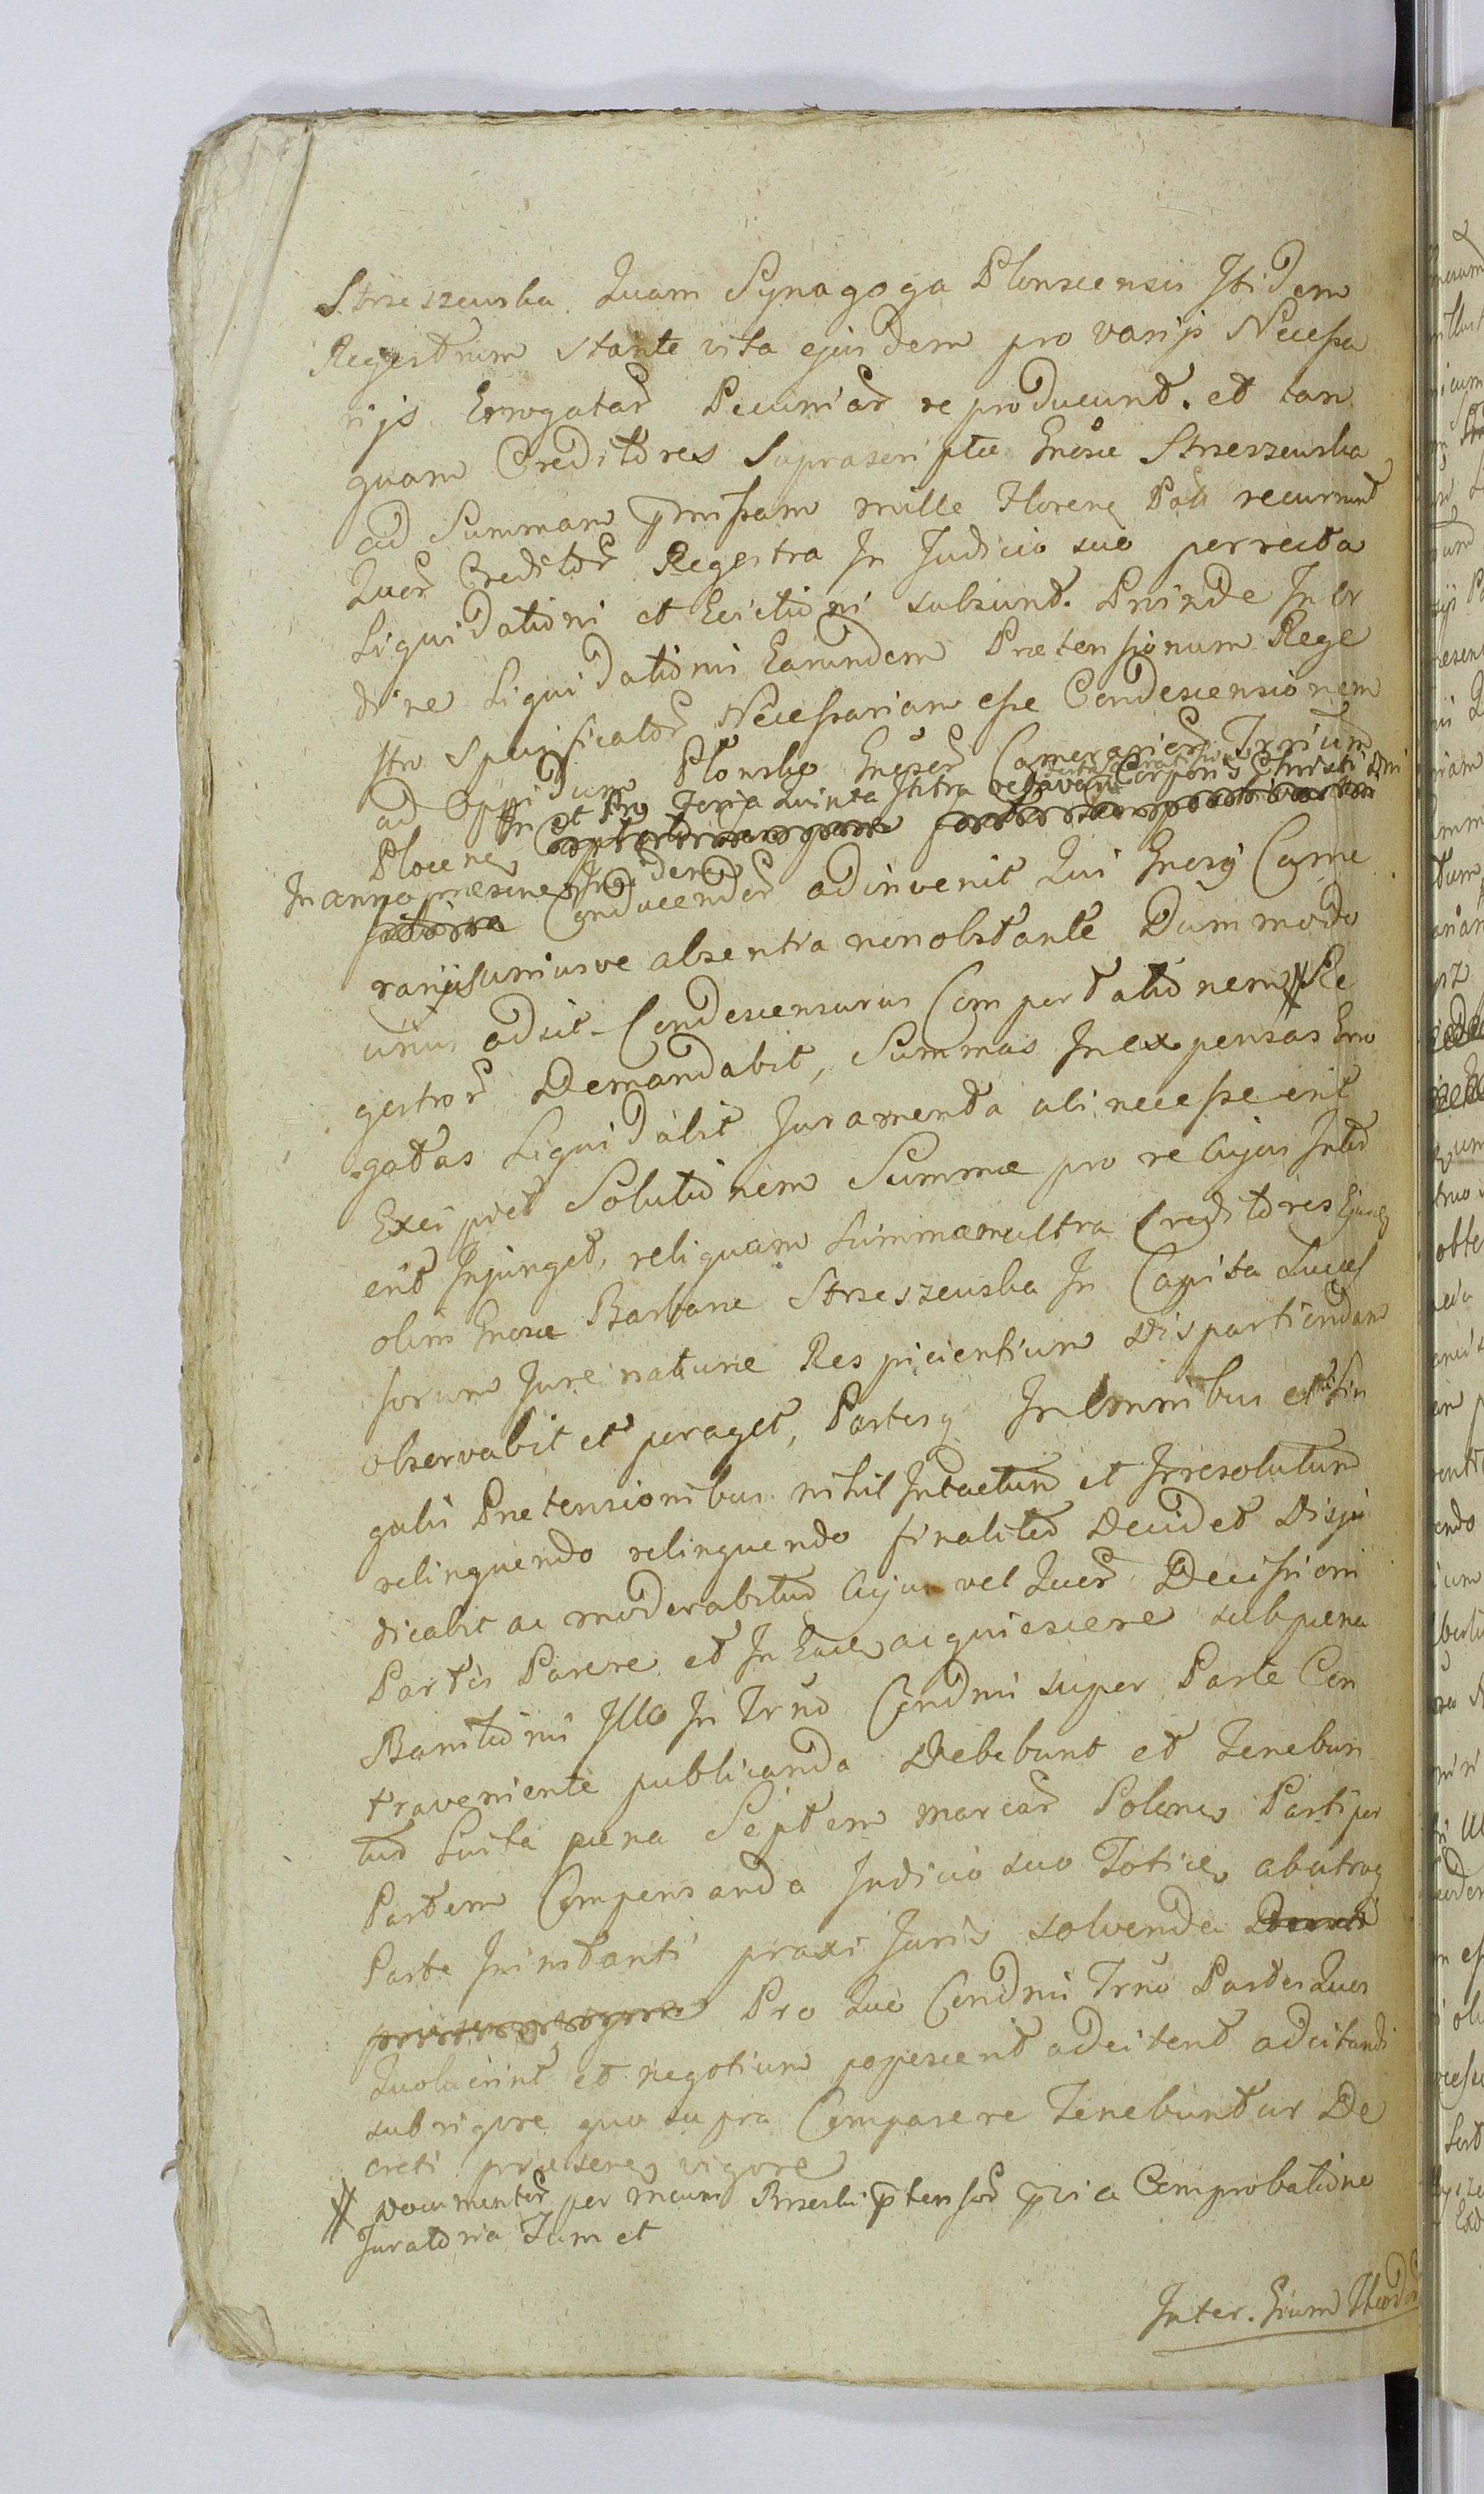 Strseszewska Quam Synagoga Plonscensis Itidem
Regestrum stante vita ejusdem pro varijs Necessa
rijs Errogatar Pecuniar reproducunt. et tan
quam Creditores suprascriptæ Gnosæ Strseszewska
ad Summam pmissam mille Floreng Poli recurrunt
Quor Creditor Regestra In Judicio suo perrecta
Liquidationi et Evictioni subsunt. Proinde In or
dine Liquidationis Earundem Prætensionum Rege
stro specificator Necessariam esse Condescensionem
ad Oppidum Plonsko Gnosor Camerarior Trrium
Plocen In et pro Feria Quinta Intra octavam Corporis Christi Dni
In anno præsen Conducendor adinvenit Qui Gnosi Came
rarij uniusve absentia non obstante Dummodo
unus adsit Condescensurus Comportationem # Re
gestror Demandabit, Summas In expensas Erro
gatas Liquidabit Juramenta ubi necesse erit
Excipiet Solutionem Summæ pro re Cujus Inter
erit Injunget, reliquam summam ultra Creditores Ejusd
olim Gnosæ Barbaræ Strseszewska In Capita Succes
sorum Jure naturæ Respicientium Dispartiendam
observabit et peraget, Partesq In Omnibus et sin
gulis Prætensionibus nihil Intactum et Irresolutum
relinquendo relinquendo finaliter Decidet Disju
dicabit ac moderabitur Cujus vel Quor Decisioni
Partes Parere et In Eadem acquiescere sub pæna
Banitionis Illo In Trno Condnis super Parte Con
traveniente publicanda Debebunt et Tenebun
tur Luita pæna Septem marcar Polong Parti per
Partem Compensanda Judicio suo Toties ab utraq
Parte Ininstanti praxi Juris solvenda
Pro Quo Condnis Trno Partes Quos
Quoluerint et negotium poposcerit adcitent adcitandi
sub rigore quo supra Comparere Tenebuntur De
creti præseng vigore
# Documentor per meum Brseski ptensor pvia Comprobatione
Juratoria Tum et
Inter. Grum Theodor